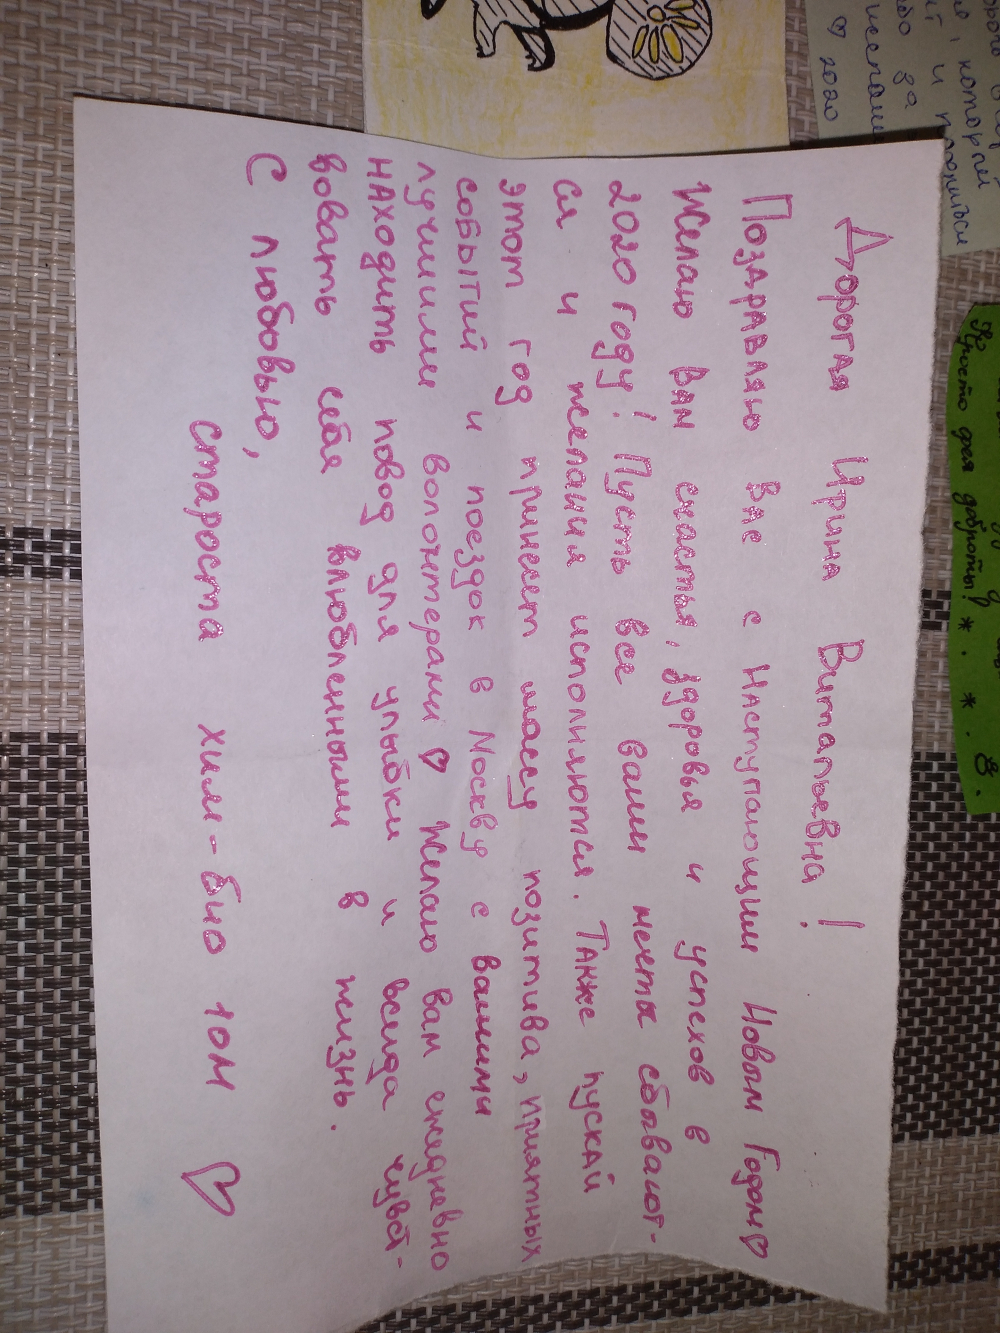 Дорогая Ирина Витальевна!
Поздравляю Вас с Наступающим Новым Годом♡
Желаю Вам счастья, здоровья и успехов в
2020 году! Пусть все ваши мечты сбывают-
ся и желания исполняются. Также пускай
этот год принесёт массу позитива, приятных
событий и поездок в Москву с вашими
лучшими волонтерами♡ Желаю вам ежедневно
находить повод для улыбки и всегда чувст-
вовать себя влюбленными в жизнь.
С любовью,
староста хим-био 10М ♡
который
и
за
♡ 2020
просто фея доброты! *